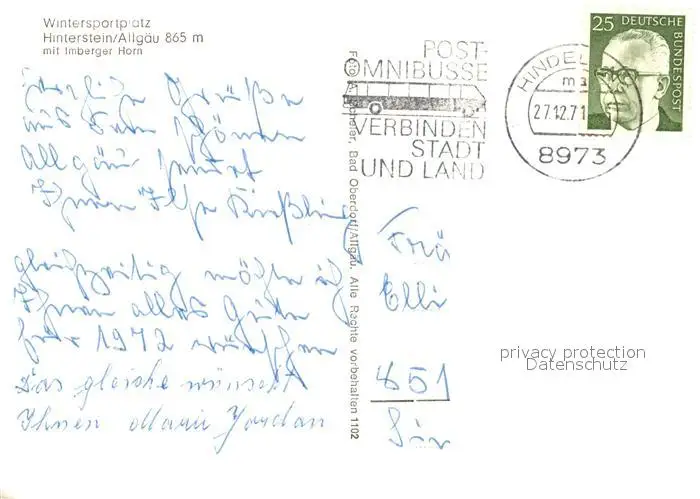 Wintersportplatz
Hinterstein/Allgäu 865 m
mit Imberger Horn
Herzliche Grüße
aus dem schönen
Allgäu sendet
Ihnen Ilse Kießling
gleichzeitig möchte ich
Ihnen alles Gute
für 1972 wünschen
Das gleiche wünscht
Ihnen Marie Jordan
Bad Oberdorf/Allgäu. Alle Rechte vorbehalten 1102
POST-
OMNIBUSSE
VERBINDEN
STADT
UND LAND
HINDEL
27.12.71
8973
25 DEUTSCHE
BUNDESPOST
Elli
851
Für
privacy protection
Datenschutz